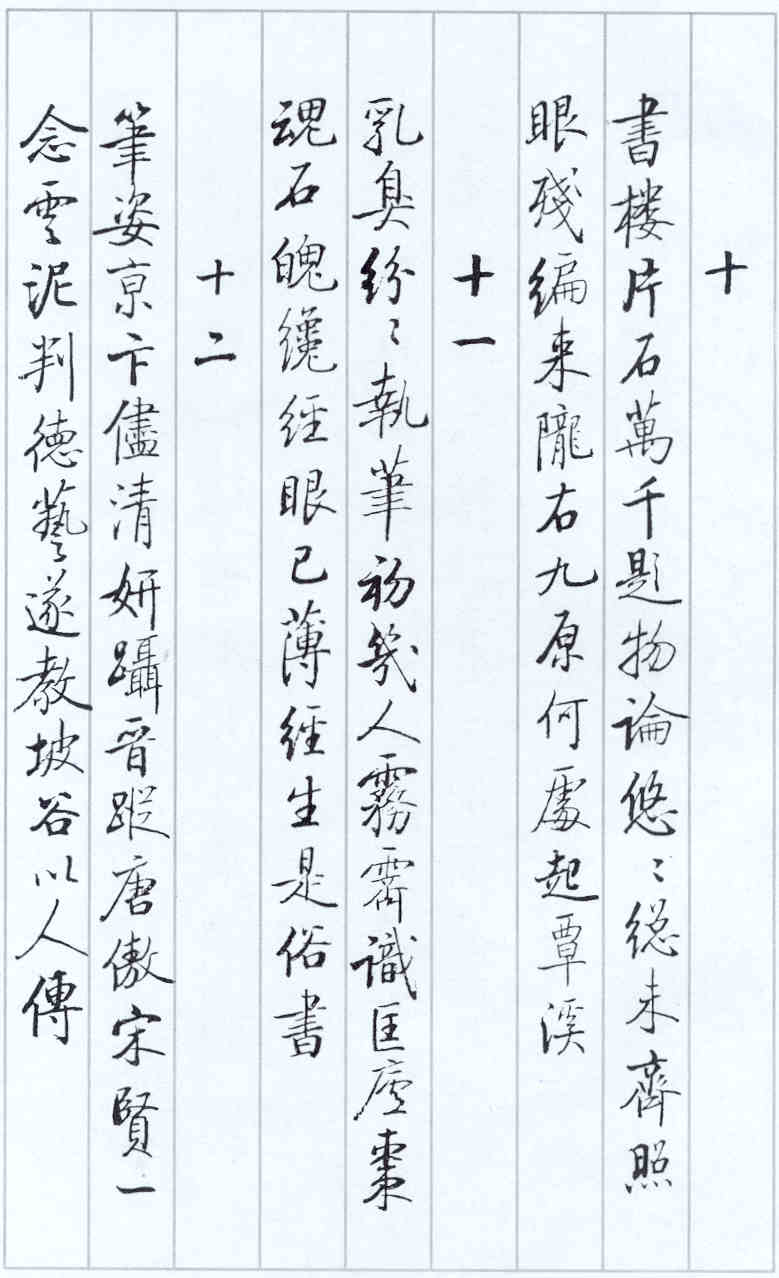 十
書樓片石萬千題物論悠〻總未齊照
眼殘編来隴右九原何處起覃溪
十一
乳臭紛〻執筆初幾人霧霽識匡廬棗
魂石魄纔經眼已薄經生是俗書
十二
筆姿京卞儘清妍躡晉蹤唐傲宋賢一
念雲泥判德藝遂教坡谷以人傳